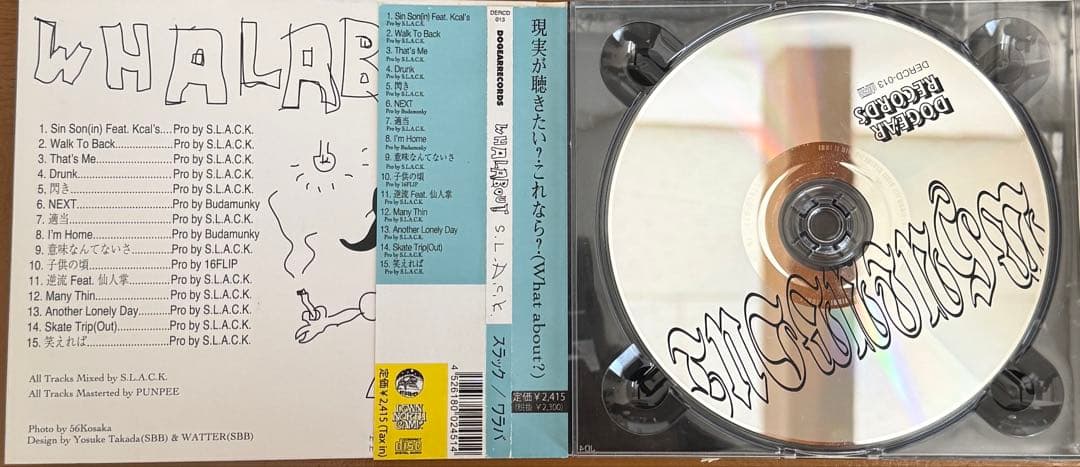 WHALAB
1. Sin Son(in) Feat. Kcal's....Pro by S.L.A.C.K.
2. Walk To Back..................Pro by S.L.A.C.K.
3. That's Me.......................Pro by S.L.A.C.K.
4. Drunk............................Pro by S.L.A.C.K.
5. 閃き...............................Pro by S.L.A.C.K.
6. NEXT............................Pro by Budamunky
7. 適当...............................Pro by S.L.A.C.K.
8. I'm Home......................Pro by Budamunky
9. 意味なんてないさ..........Pro by S.L.A.C.K.
10. 子供の頃.......................Pro by 16FLIP
11. 逆流 Feat. 仙人掌..........Pro by S.L.A.C.K.
12. Many Thin....................Pro by S.L.A.C.K.
13. Another Lonely Day.......Pro by S.L.A.C.K.
14. Skate Trip(Out).............Pro by S.L.A.C.K.
15. 笑えれば.....................Pro by S.L.A.C.K.
All Tracks Mixed by S.L.A.C.K.
All Tracks Masterted by PUNPEE
Photo by 56Kosaka
Design by Yosuke Takada(SBB) & WATTER(SBB)
1. Sin Son(in) Feat. Kcal's
Pro by S.L.A.C.K.
2. Walk To Back
Pro by S.L.A.C.K.
3. That's Me
Pro by S.L.A.C.K.
4. Drunk
Pro by S.L.A.C.K.
5. 閃き
Pro by S.L.A.C.K.
6. NEXT
Pro by Budamunky
7. 適当
Pro by S.L.A.C.K.
8. I'm Home
Pro by Budamunky
9. 意味なんてないさ
Pro by S.L.A.C.K.
10. 子供の頃
Pro by 16FLIP
11. 逆流 Feat. 仙人掌
Pro by S.L.A.C.K.
12. Many Thin
Pro by S.L.A.C.K.
13. Another Lonely Day
Pro by S.L.A.C.K.
14. Skate Trip(Out)
Pro by S.L.A.C.K.
15. 笑えれば
Pro by S.L.A.C.K.
定価¥2,415 (Tax in)
DOWN NORTH CAMP
COMPACT disc DIGITAL AUDIO
4 526180 024514
DERCD 013
DOGEARRECORDS
WHALABOUT
S.L.A.C.K.
スラック／ワラバ
現実が聴きたい？これなら？(What about?)
定価¥2,415
(税抜 ¥2,300)
DOGEAR RECORDS
DERCD-013
WHALABOUT
JD4